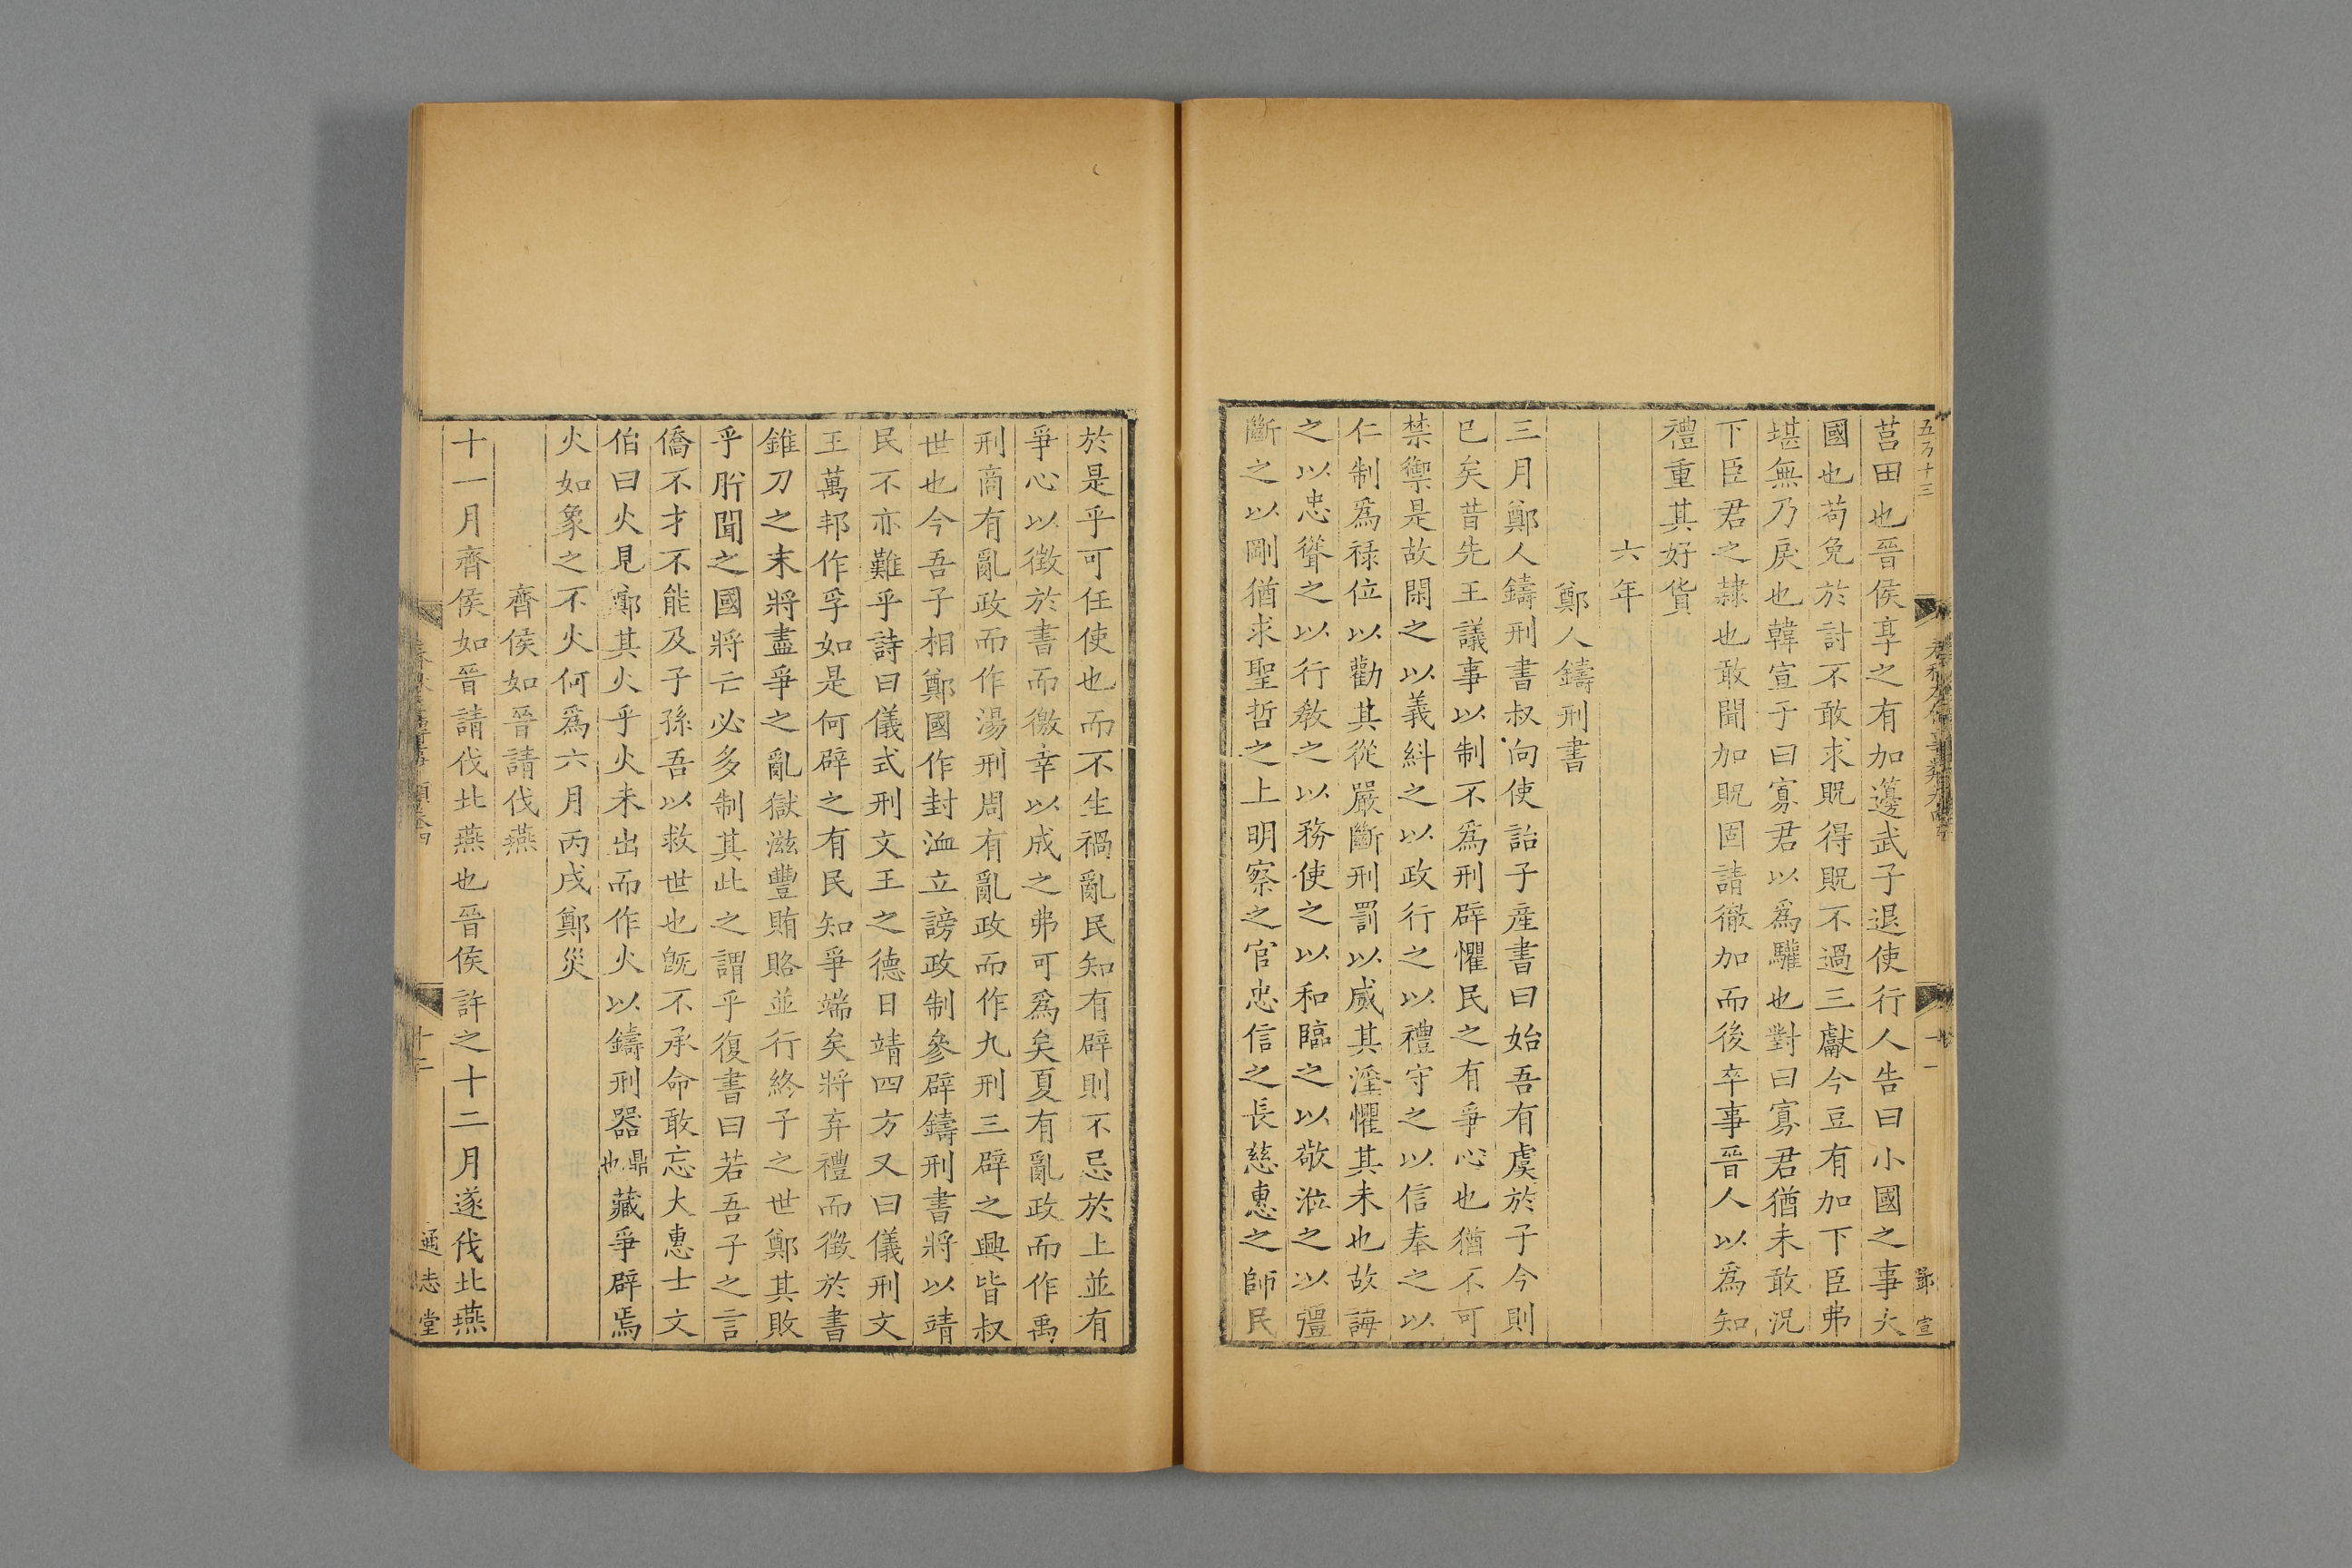 五万十三
莒田也晉侯享之有加籩武子退使行人告曰小國之事大
國也苟免於討不敢求貺得貺不過三獻今豆有加下臣弗
堪無乃戾也韓宣子曰寡君以爲驩也對曰寡君猶未敢況
下臣君之隷也敢聞加貺固請徹加而後卒事晉人以爲知
禮重其好貨
六年
鄭人鑄刑書
三月鄭人鑄刑書叔向使詒子産書曰始吾有虞於子今則
已矣昔先王議事以制不爲刑辟懼民之有爭心也猶不可
禁禦是故閑之以義糾之以政行之以禮守之以信奉之以
仁制爲禄位以勸其從嚴斷刑罰以威其淫懼其未也故誨
之以忠聳之以行教之以務使之以和臨之以敬涖之以彊
斷之以剛猶求聖哲之上明察之官忠信之長慈惠之師民
於是乎可任使也而不生禍亂民知有辟則不忌於上並有
爭心以徵於書而徼幸以成之弗可爲矣夏有亂政而作禹
刑商有亂政而作湯刑周有亂政而作九刑三辟之興皆叔
世也今吾子相鄭國作封洫立謗政制參辟鑄刑書將以靖
民不亦難乎詩曰儀式刑文王之德日靖四方又曰儀刑文
王萬邦作孚如是何辟之有民知爭端矣將弃禮而徵於書
錐刀之末將盡爭之亂獄滋豐賄賂並行終子之世鄭其敗
乎肸聞之國將亡必多制其此之謂乎復書曰若吾子之言
僑不才不能及子孫吾以救世也旣不承命敢忘大惠士文
伯曰火見鄭其火乎火未出而作火以鑄刑器鼎也藏爭辟焉
火如象之不火何爲六月丙戌鄭災
齊侯如晉請伐燕
十一月齊侯如晉請伐北燕也晉侯許之十二月遂伐北燕
通志堂